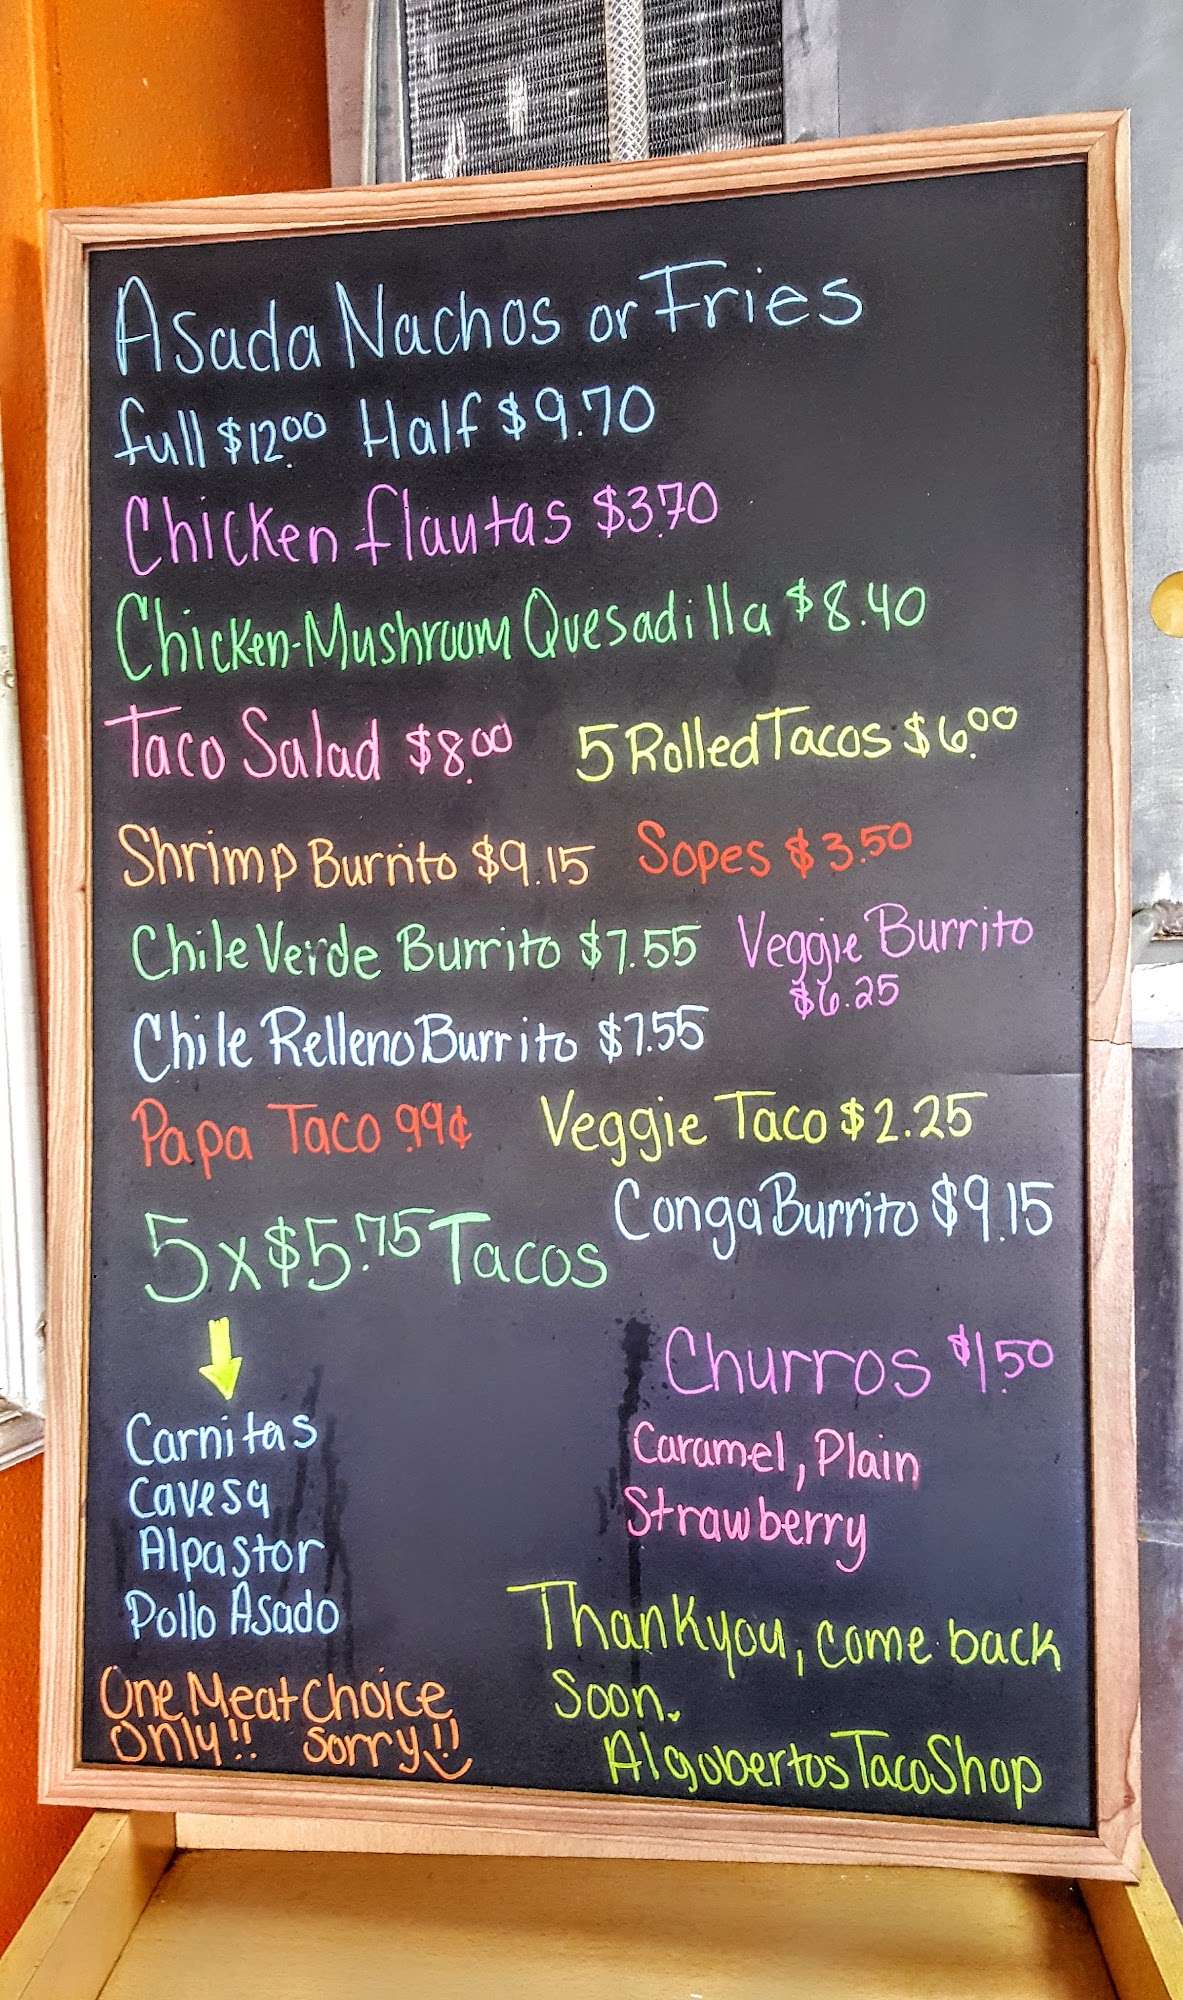 Asada Nachos or Fries
full $12.00 Half $9.70
Chicken flautas $3.70
Chicken-Mushroom Quesadilla $8.40
Taco Salad $8.00 5 Rolled Tacos $6.00
Shrimp Burrito $9.15 Sopes $3.50
Chile Verde Burrito $7.55 Veggie Burrito
$6.25
Chile Relleno Burrito $7.55
Papa Taco .99¢ Veggie Taco $2.25
Conga Burrito $9.15
5x$5.75 Tacos
Churros $1.50
Carnitas
Cavesa
Alpastor
Pollo Asado
Caramel, Plain
Strawberry
One Meat Choice
Only!! Sorry!!
Thank you, come back
Soon.
Algobertos Taco Shop